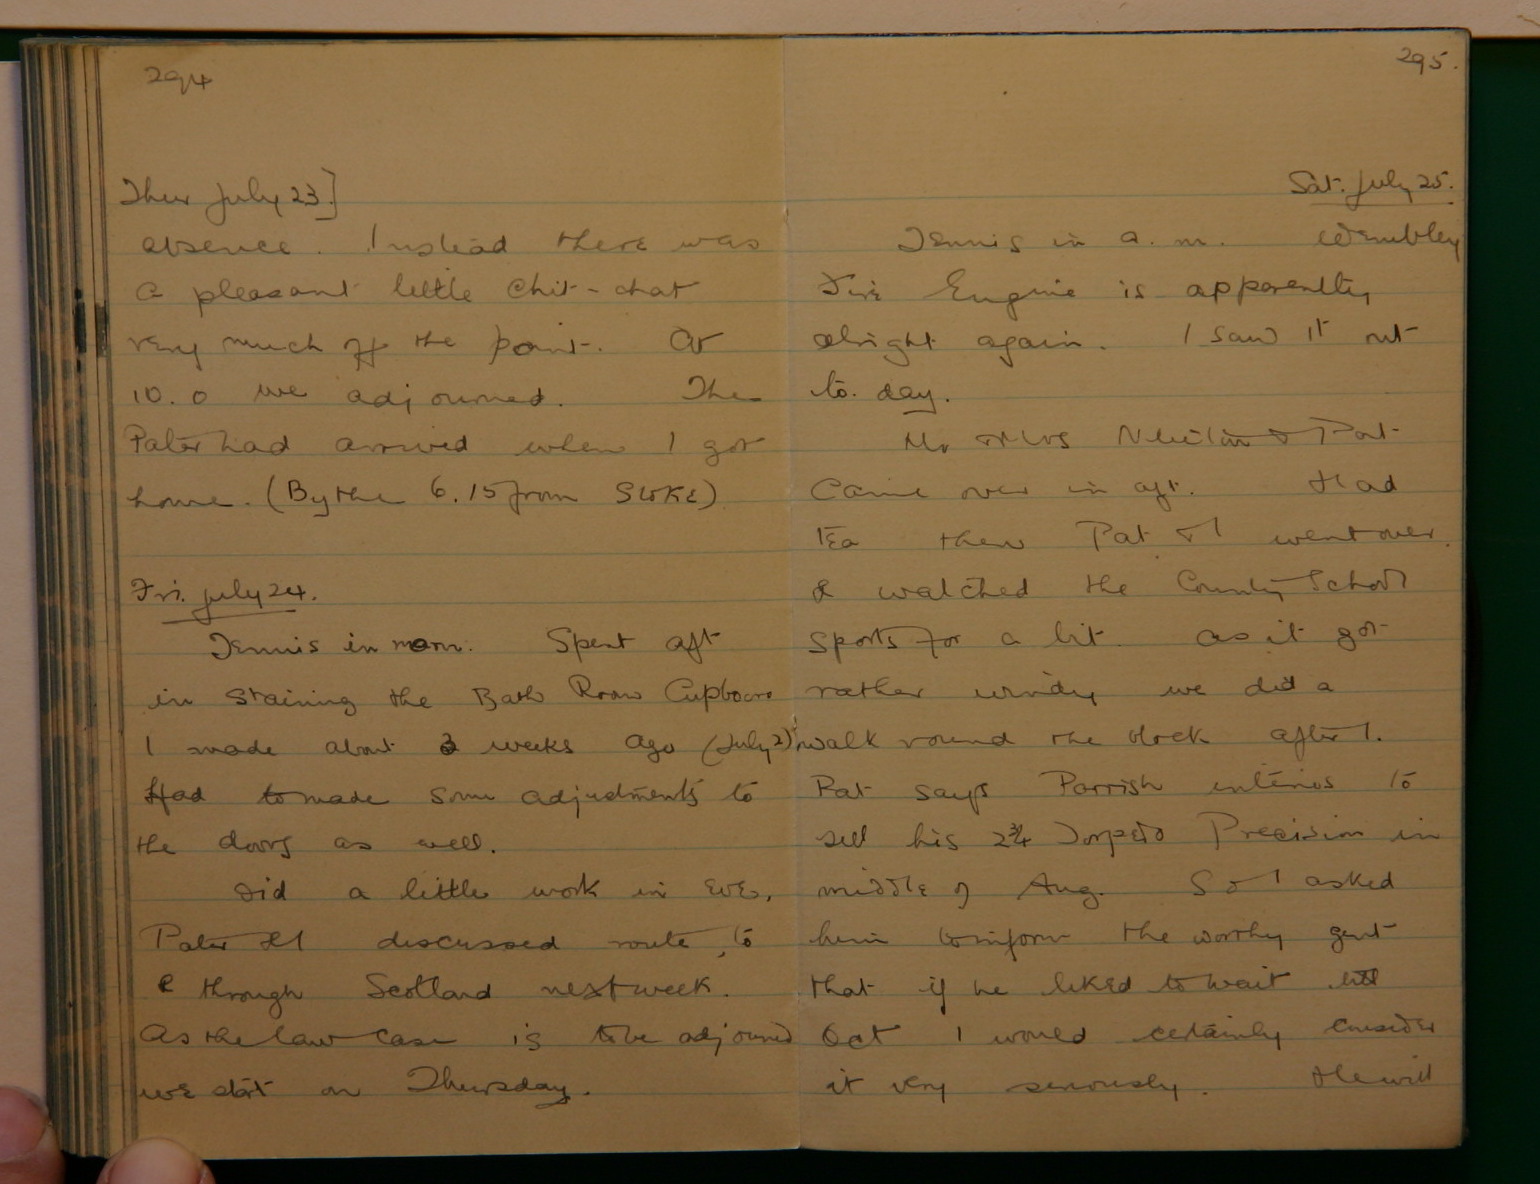 294
Thur July 23]
absence. Instead there was
a pleasant little chit-chat
very much off the point. At
10.0 we adjourned. The
Pater had arrived when I got
home. (By the 6.15 from Stoke)
Fri. July 24.
Tennis in morn. Spent aft
in staining the Bath Room Cupboard
I made about 3 weeks ago (July 2)
Had to made some adjustments to
the doors as well.
Did a little work in eve,
Pater & I discussed route, to
& through Scotland next week.
As the law case is to be adjourned
we start on Thursday.
295.
Sat. July 25.
Tennis in a.m. Wembley
Fire Engine is apparently
alright again. I saw it out
to. day.
Mr & Mrs & Pat
came over in aft. Had
tea then Pat & I went over
& watched the County School
sports for a bit. As it got
rather windy we did a
walk round the block after 1.
Pat says Parrish intends to
sell his 2¾ Torpedo Precision in
middle of Aug. So I asked
him to inform the worthy gent
that if he liked to wait till
Oct I would certainly consider
it very seriously. He will